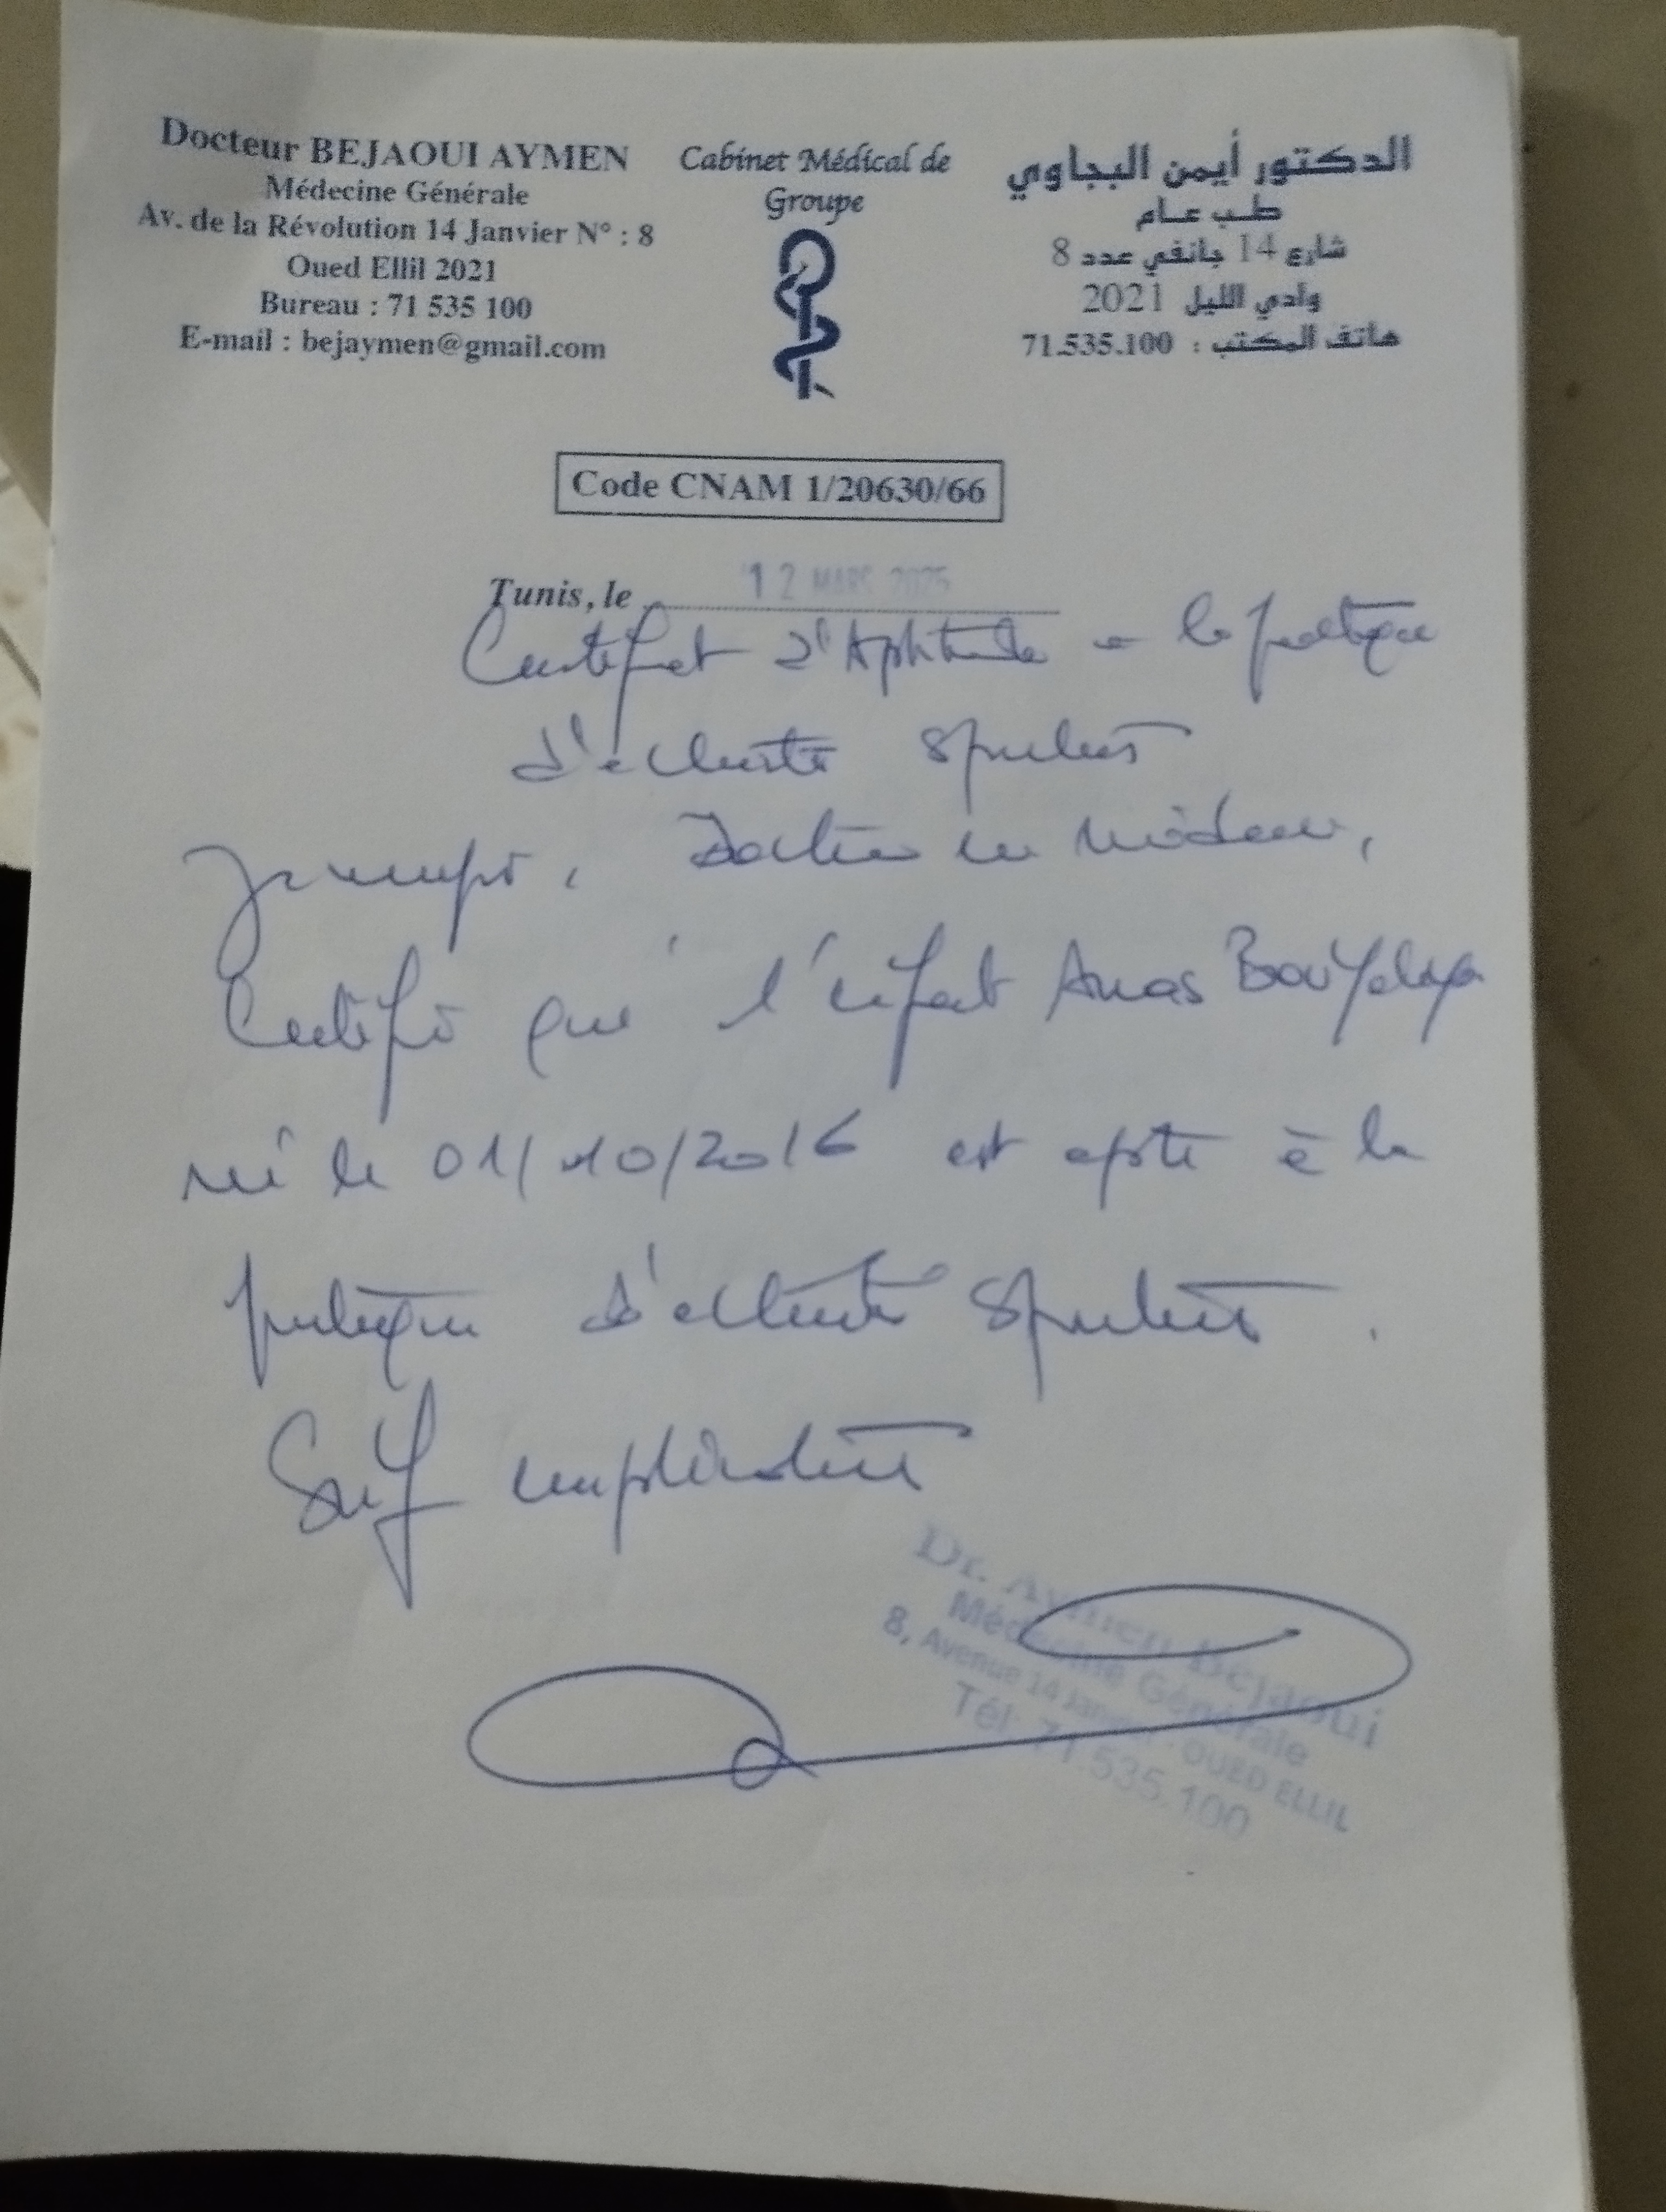 Docteur BEJAOUI AYMEN
Médecine Générale
Av. de la Révolution 14 Janvier N° : 8
Oued Ellil 2021
Bureau : 71 535 100
E-mail : bejaymen@gmail.com
Cabinet Médical de
Groupe
الدكتور أيمن البجاوي
طب عام
شارع 14 جانفي عدد 8
وادي الليل 2021
هاتف المكتب : 71.535.100
Code CNAM 1/20630/66
Tunis, le 12 MARS 2025
Certificat d'Aptitude à la pratique
d'activité sportive
Je soussigné, Docteur en médecine,
Certifie que l'enfant Anas
né le 01/10/2016 est apte à la
pratique d'activité sportive.
Sauf complications
Dr. Aymen Bejaoui
Médecine Générale
8, Avenue 14 Janvier - OUED ELLIL
Tél: 71.535.100